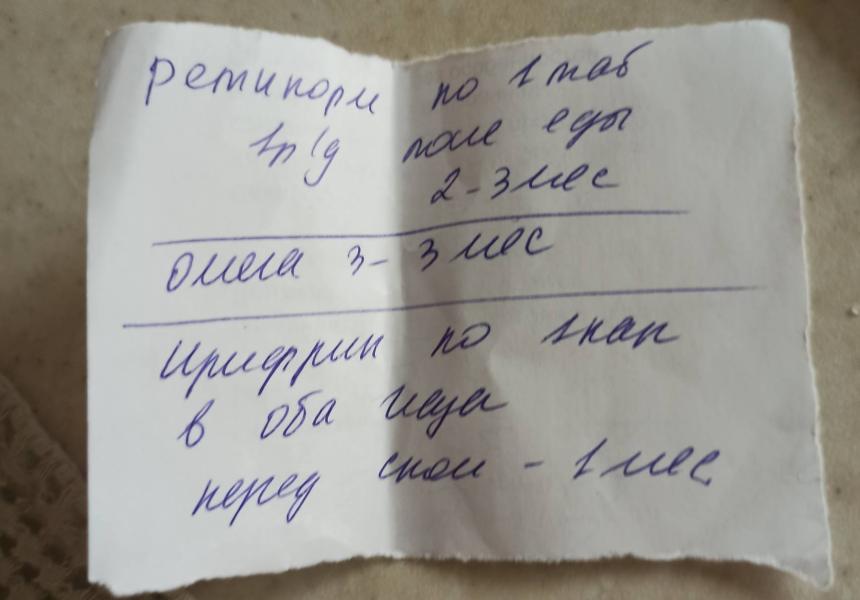 ретинорм по 1 таб
1р/д после еды
2-3 мес
омега 3 - 3 мес
Ирифрин по 1 кап
в оба глаза
перед сном - 1 мес.